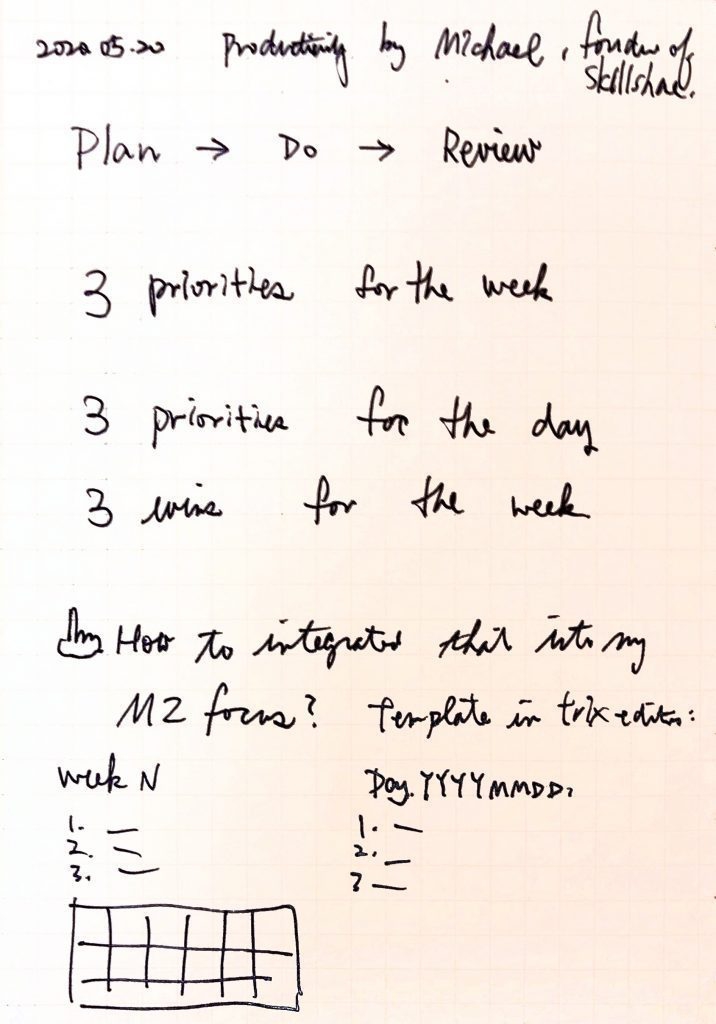 2020.05.20 Productivity by Michael, founder of
Skillshare.
Plan → Do → Review
3 priorities for the week
3 priorities for the day
3 wins for the week
How to integrated that into my
MZ focus? Template in trix-editor:
week N Day.YYYYMMDD.
1. — 1. —
2. — 2. —
3. — 3 —